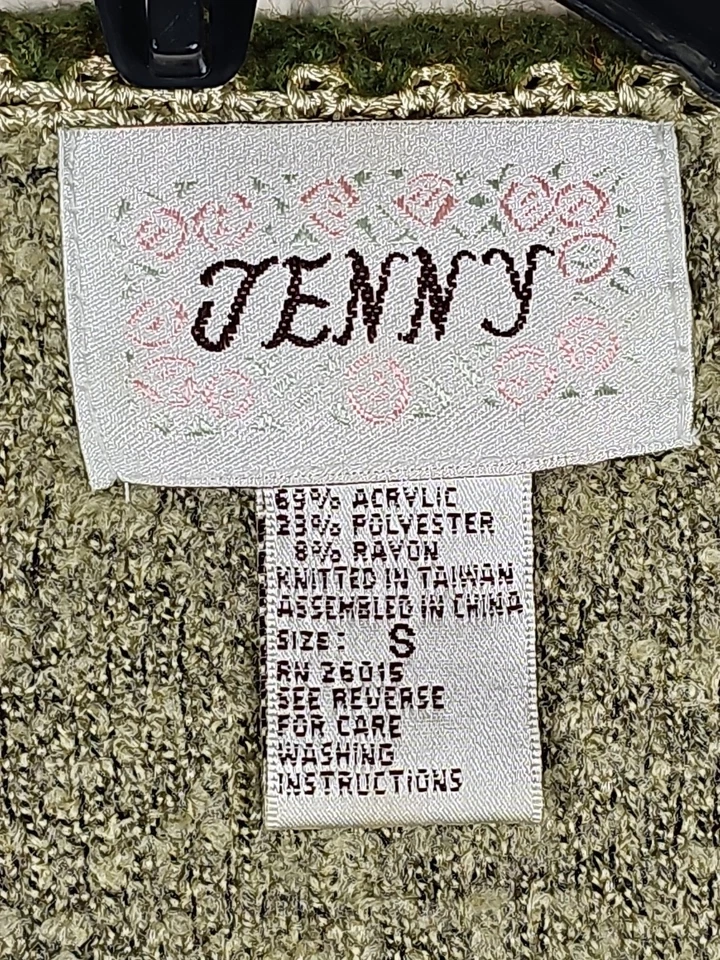 JENNY
69% ACRYLIC
23% POLYESTER
8% RAYON
KNITTED IN TAIWAN
ASSEMBLED IN CHINA
SIZE: S
RN 26015
SEE REVERSE
FOR CARE
WASHING
INSTRUCTIONS